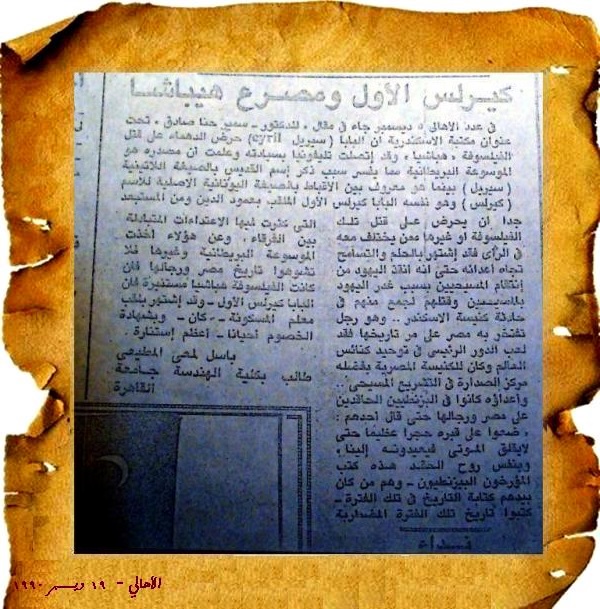 كيرلس الأول ومصرع هيباشا
فى عدد الأهالى ٥ ديسمبر جاء فى مقال ، للدكتور - سمير حنا صادق ، تحت
عنوان مكتبة الاسكندرية أن البابا ( سيريل cyril ) حرض الدهماء على قتل
الفيلسوفة ، هيباشيا ، وقد إتصلت تليفونيا بسيادته وعلمت أن مصدره هو
الموسوعة البريطانية مما يفسر سبب ذكر إسم القديس بالصيغة اللاتينية
( سيريل ) بينما هو معروف بين الأقباط بالصيغة اليونانية الاصلية للاسم
( كيرلس ) وهو نفسه البابا كيرلس الأول الملقب بعمود الدين ومن المستبعد
جدا أن يحرض على قتل تلك
الفيلسوفة او غيرها ممن يختلف معه
فى الرأى فقد إشتهر بالحلم والتسامح
تجاه اعدائه حتى انه انقذ اليهود من
إنتقام المسيحيين بسبب غدر اليهود
بالمسيحيين وقتلهم لجمع منهم فى
حادثة كنيسة الاسكندر .. وهو رجل
تفتخر به مصر على مر تاريخها فقد
لعب الدور الرئيسى فى توحيد كنائس
العالم وكان للكنيسة المصرية بفضله
مركز الصدارة فى التشريع المسيحى ..
وأعداؤه كانوا فى البيزنطيين الحاقدين
على مصر ورجالها حتى قال احدهم :
، ضعوا على قبره حجرا عظيما حتى
لايقلق الموتى فيعيدونه إلينا ،
وبنفس روح الحقد هذه كتب
المؤرخون البيزنطيون - وهم من كان
بيدهم كتابة التاريخ فى تلك الفترة -
كتبوا تاريخ تلك الفترة المضطربة
التى كثرت فيها الاعتداءات المتبادلة
بين الفرقاء . وعن هؤلاء أخذت
الموسوعة البريطانية وغيرها فلا
تشوهوا تاريخ مصر ورجالها فان
كانت الفيلسوفة هباشيا مستنيرة فان
البابا كيرلس الأول - وقد إشتهر بلقب
معلم المسكونة - كان - وبشهادة
الخصوم أحيانا - أعظم إستنارة .
باسل لمعى المطيعى
طالب بكلية الهندسة جامعة
القاهرة
نداء
الأهالي - ١٩ ديسمبر ١٩٩٠